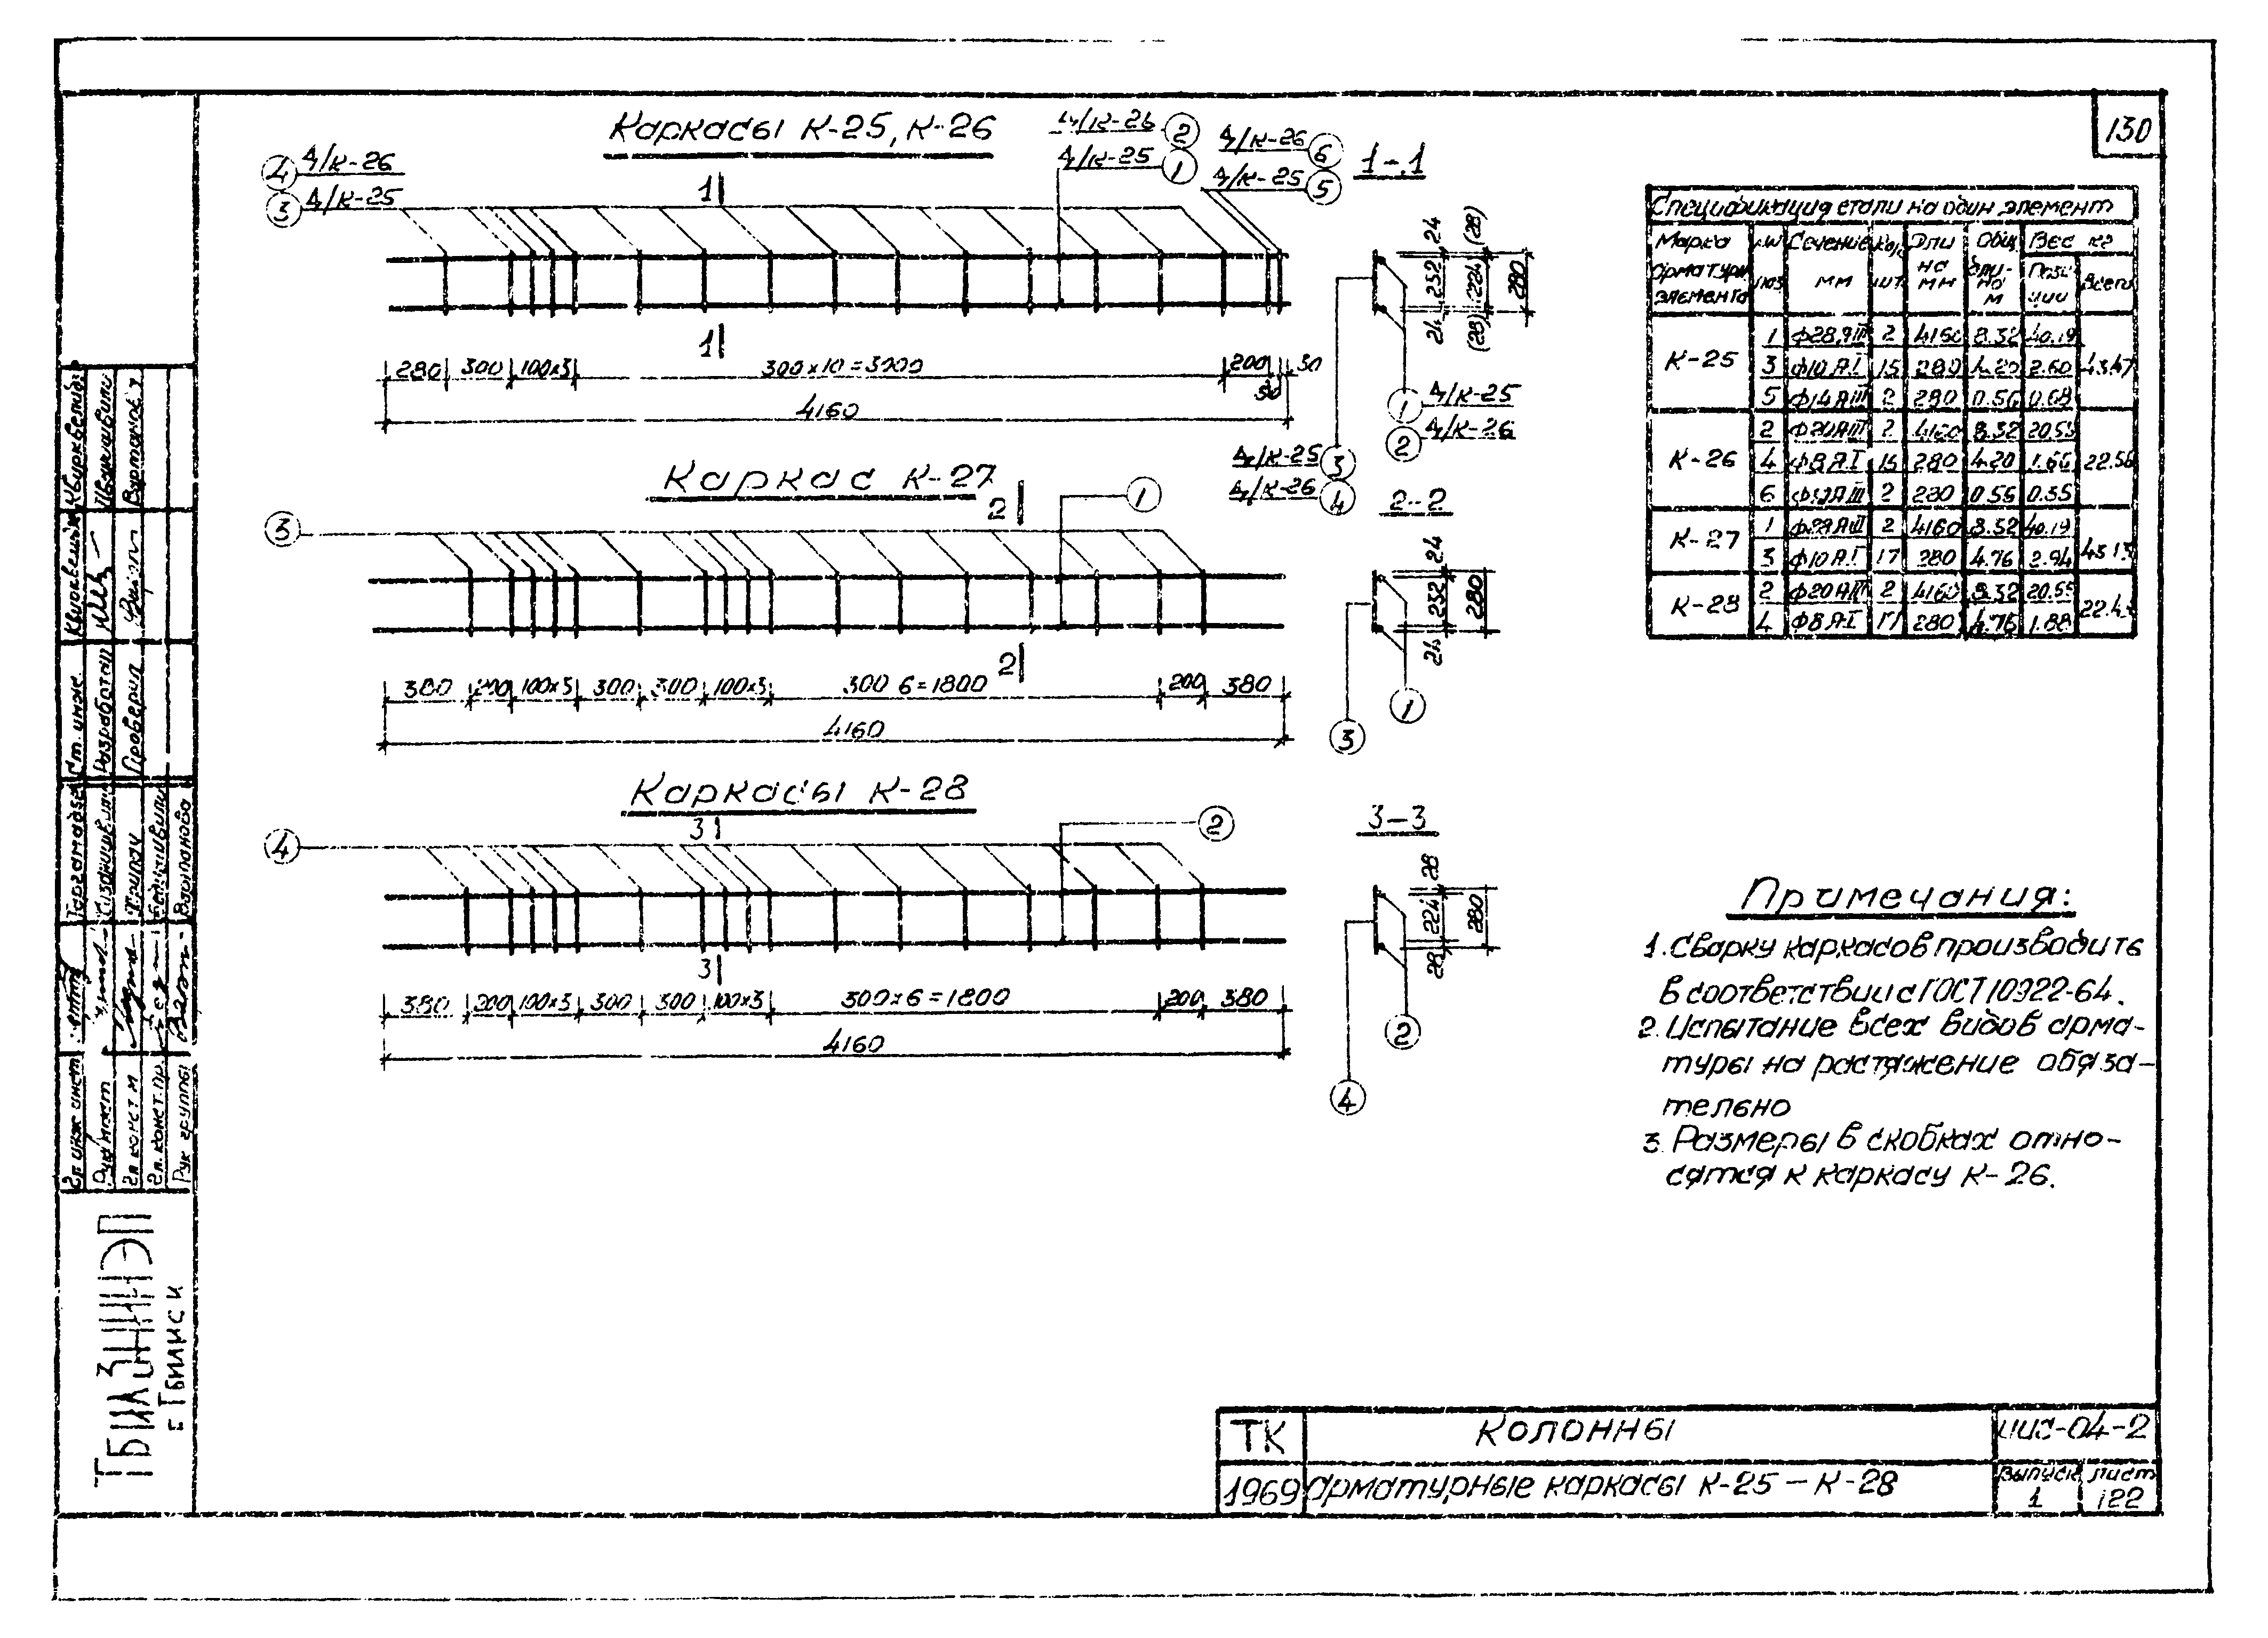 130
Каркасы К-25, К-26
4/К-26
4/К-25
4/К-26 2
4/К-25 1
4/К-26 6
4/К-25 5
1-1
4 д/К-26
3 д/К-25
1
1
280 300 100х3 300х10=3000 200 50 30
4160
24 252 24
(28) (224) (28)
280
1 д/К-25
2 д/К-26
д/К-25 3
д/К-26 4
Каркас К-27
2
1
3
2
380 200 100х3 300 300 100х3 300 6=1800 200 380
4160
2-2
24 252 24 280
1
3
Каркасы К-28
3
2
4
3
380 200 100х3 300 300 100х3 300х6=1800 200 380
4160
3-3
28 224 28 280
2
4
Спецификация стали на один элемент
Марка арматурн элемента
поз
Сечение мм
шт.
Длина мм
Общ длина м
Вес кг
Позиции
Всего
К-25
1 Ф28АIII 2 4160 8.32 40.19
3 Ф10АI 15 280 4.20 2.60 43.47
5 Ф14АIII 2 280 0.56 0.68
К-26
2 Ф20АIII 2 4160 8.32 20.55
4 Ф8АI 15 280 4.20 1.66 22.56
6 2 280 0.56 0.35
К-27
1 Ф28АIII 2 4160 8.32 40.19
3 Ф10АI 17 280 4.76 2.94 43.13
К-28
2 Ф20АIII 2 4160 8.32 20.55
4 Ф8АI 17 280 4.76 1.88
Примечания:
1. Сварку каркасов производить
в соответствии с ГОСТ 10922-64.
2. Испытание всех видов арма-
туры на растяжение обяза-
тельно
3. Размеры в скобках отно-
сятся к каркасу К-26.
Ст. инж.
Разработал
Проверил
Гл. конст. пр.
Рук группы
ТбилЗНИИЭП
г. Тбилиси
ТК КОЛОННЫ ИИС-04-2
1969 Арматурные каркасы К-25 – К-28
Выпуск 1
Лист 122